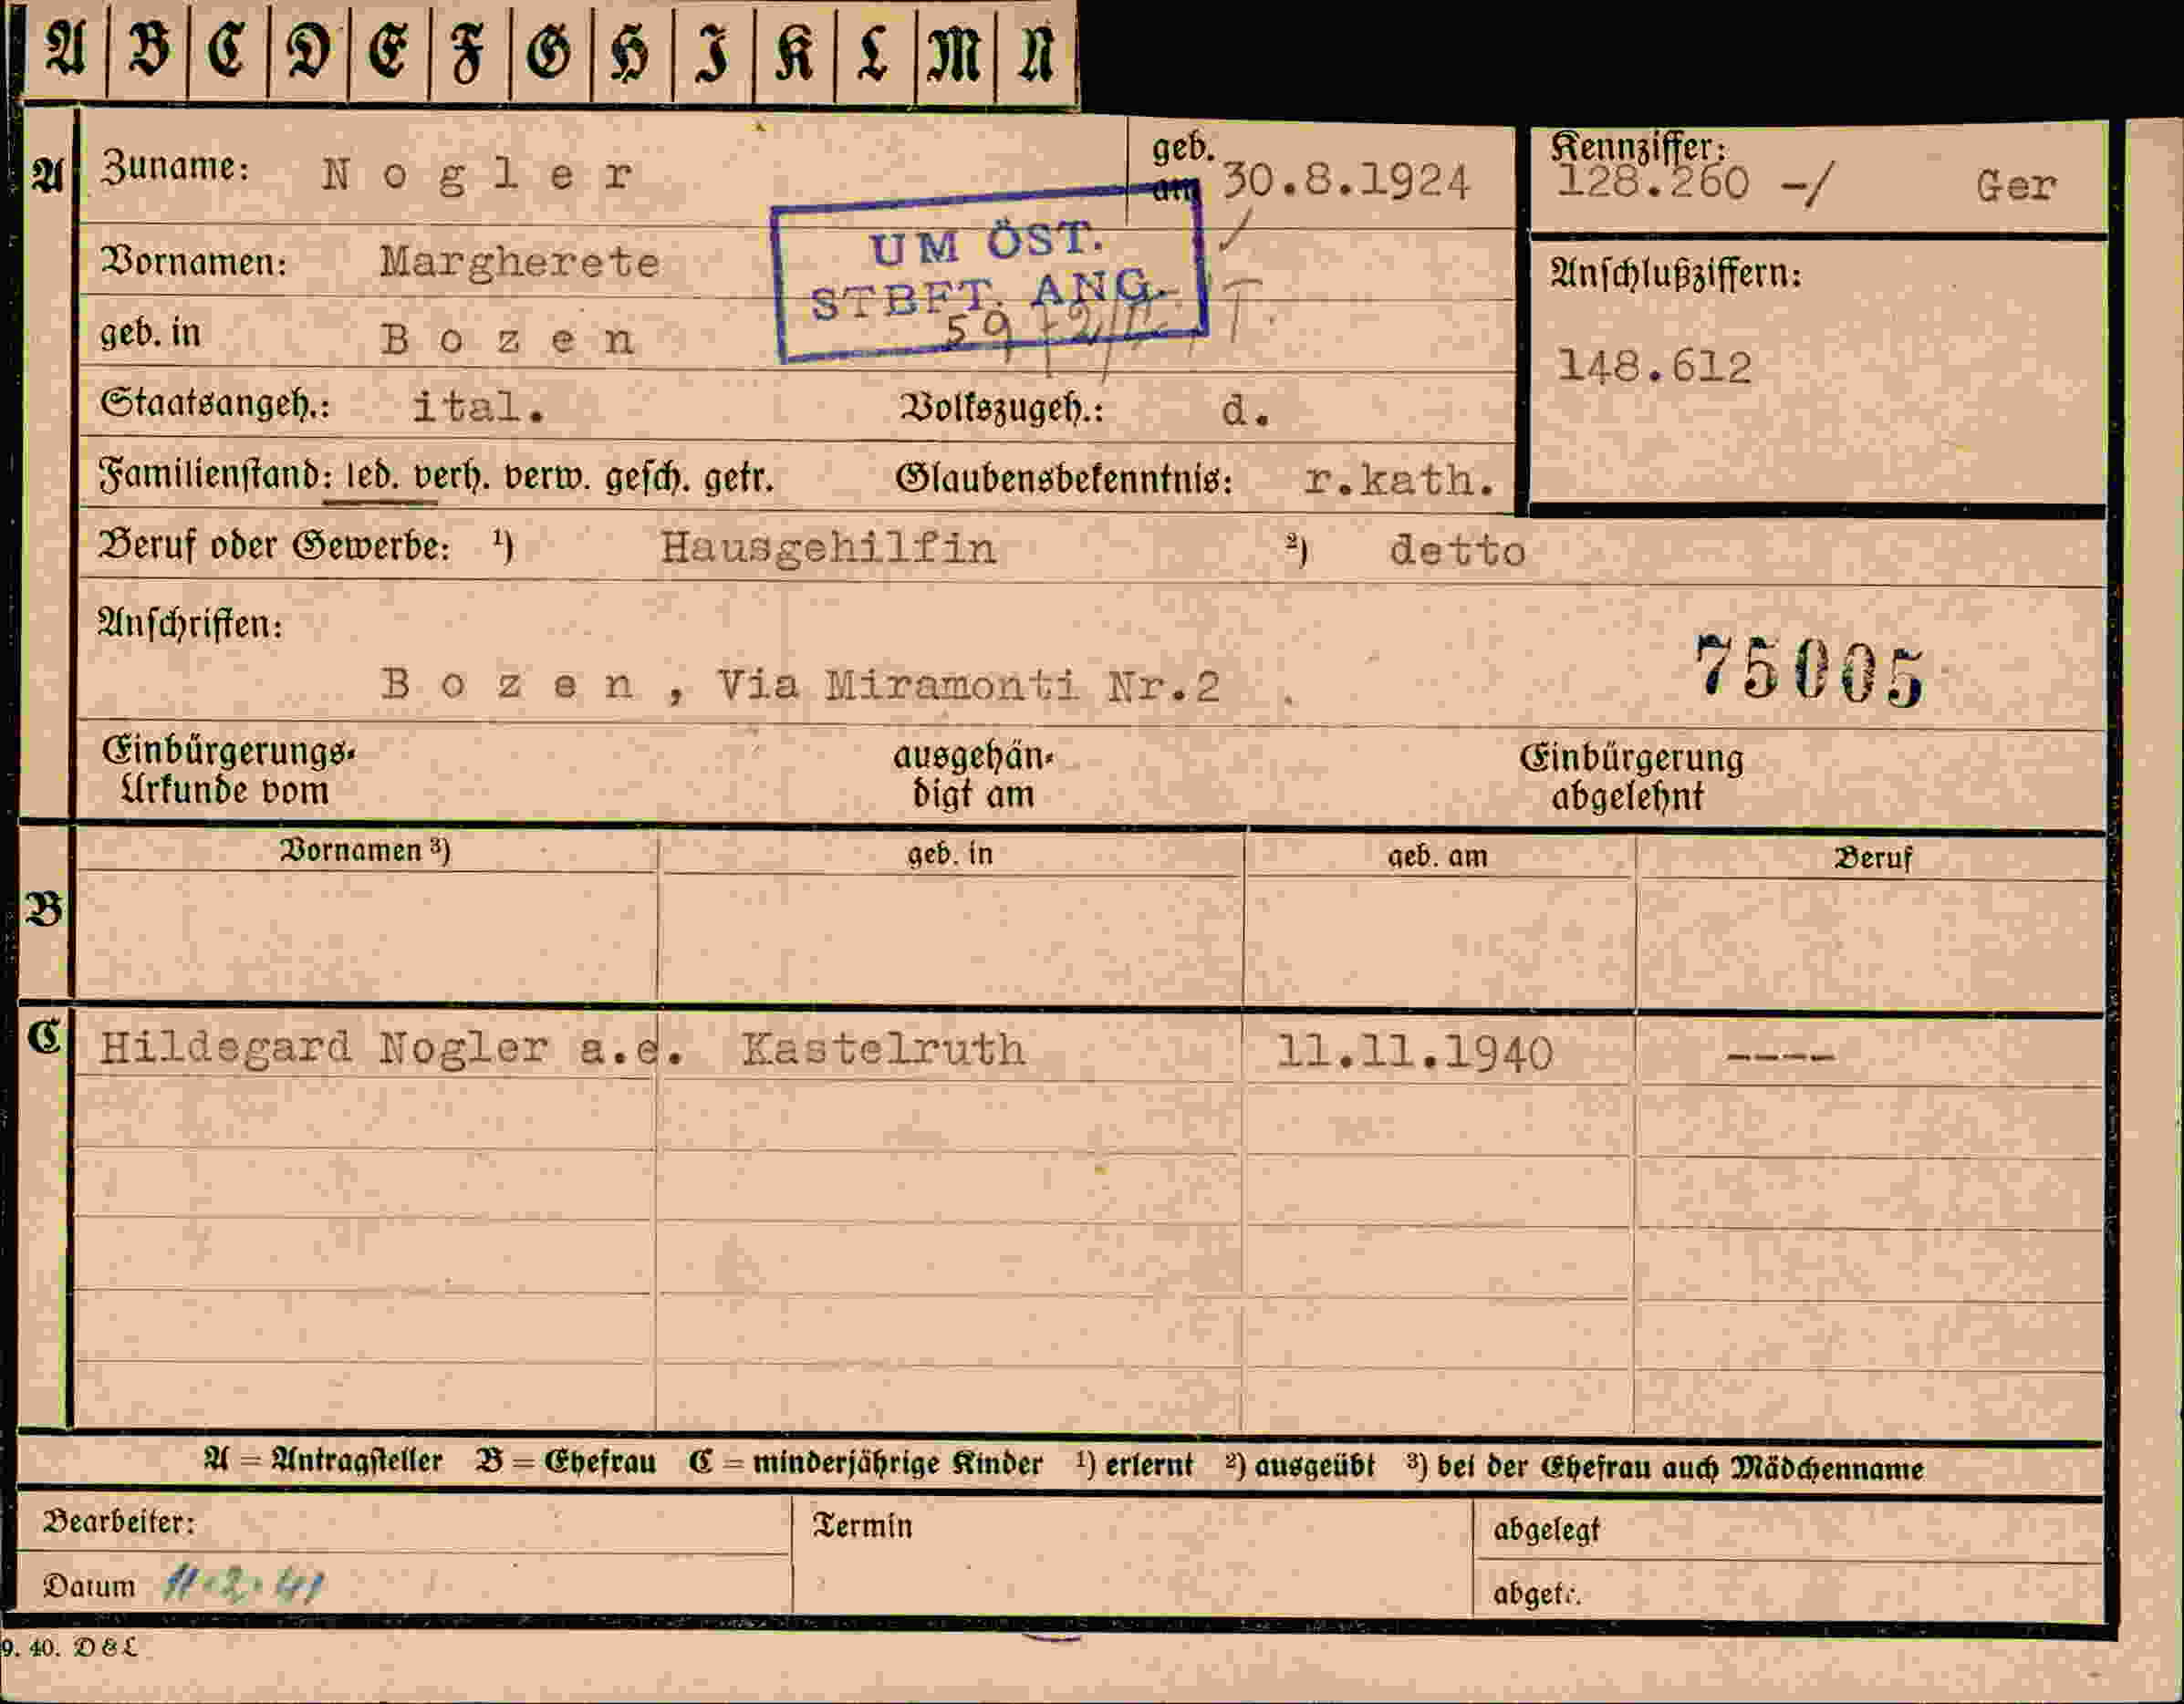 A B C D E F G H I K L M N
A Zuname: Nogler geb. am 30.8.1924 Kennziffer: 128.260 -/ Ger
UM ÖST.
STBFT. ANG.
Vornamen: Margherete
Anschlußziffern:
geb. in Bozen
148.612
Staatsangeh.: ital. Volkszugeh.: d.
Familienstand: led. verh. verw. gesch. getr. Glaubensbekenntnis: r.kath.
Beruf oder Gewerbe: 1) Hausgehilfin 2) detto
Anschriften:
Bozen, Via Miramonti Nr.2 .
75005
Einbürgerungs-
Urkunde vom
ausgehän-
digt am
Einbürgerung
abgelehnt
B
Vornamen 3) geb. in geb. am Beruf
C Hildegard Nogler a.e. Kastelruth 11.11.1940 ----
A = Antragsteller B = Ehefrau C = minderjährige Kinder 1) erlernt 2) ausgeübt 3) bei der Ehefrau auch Mädchenname
Bearbeiter: Termin abgelegt
Datum 11.2.41 abgetr.
9. 40. D&L